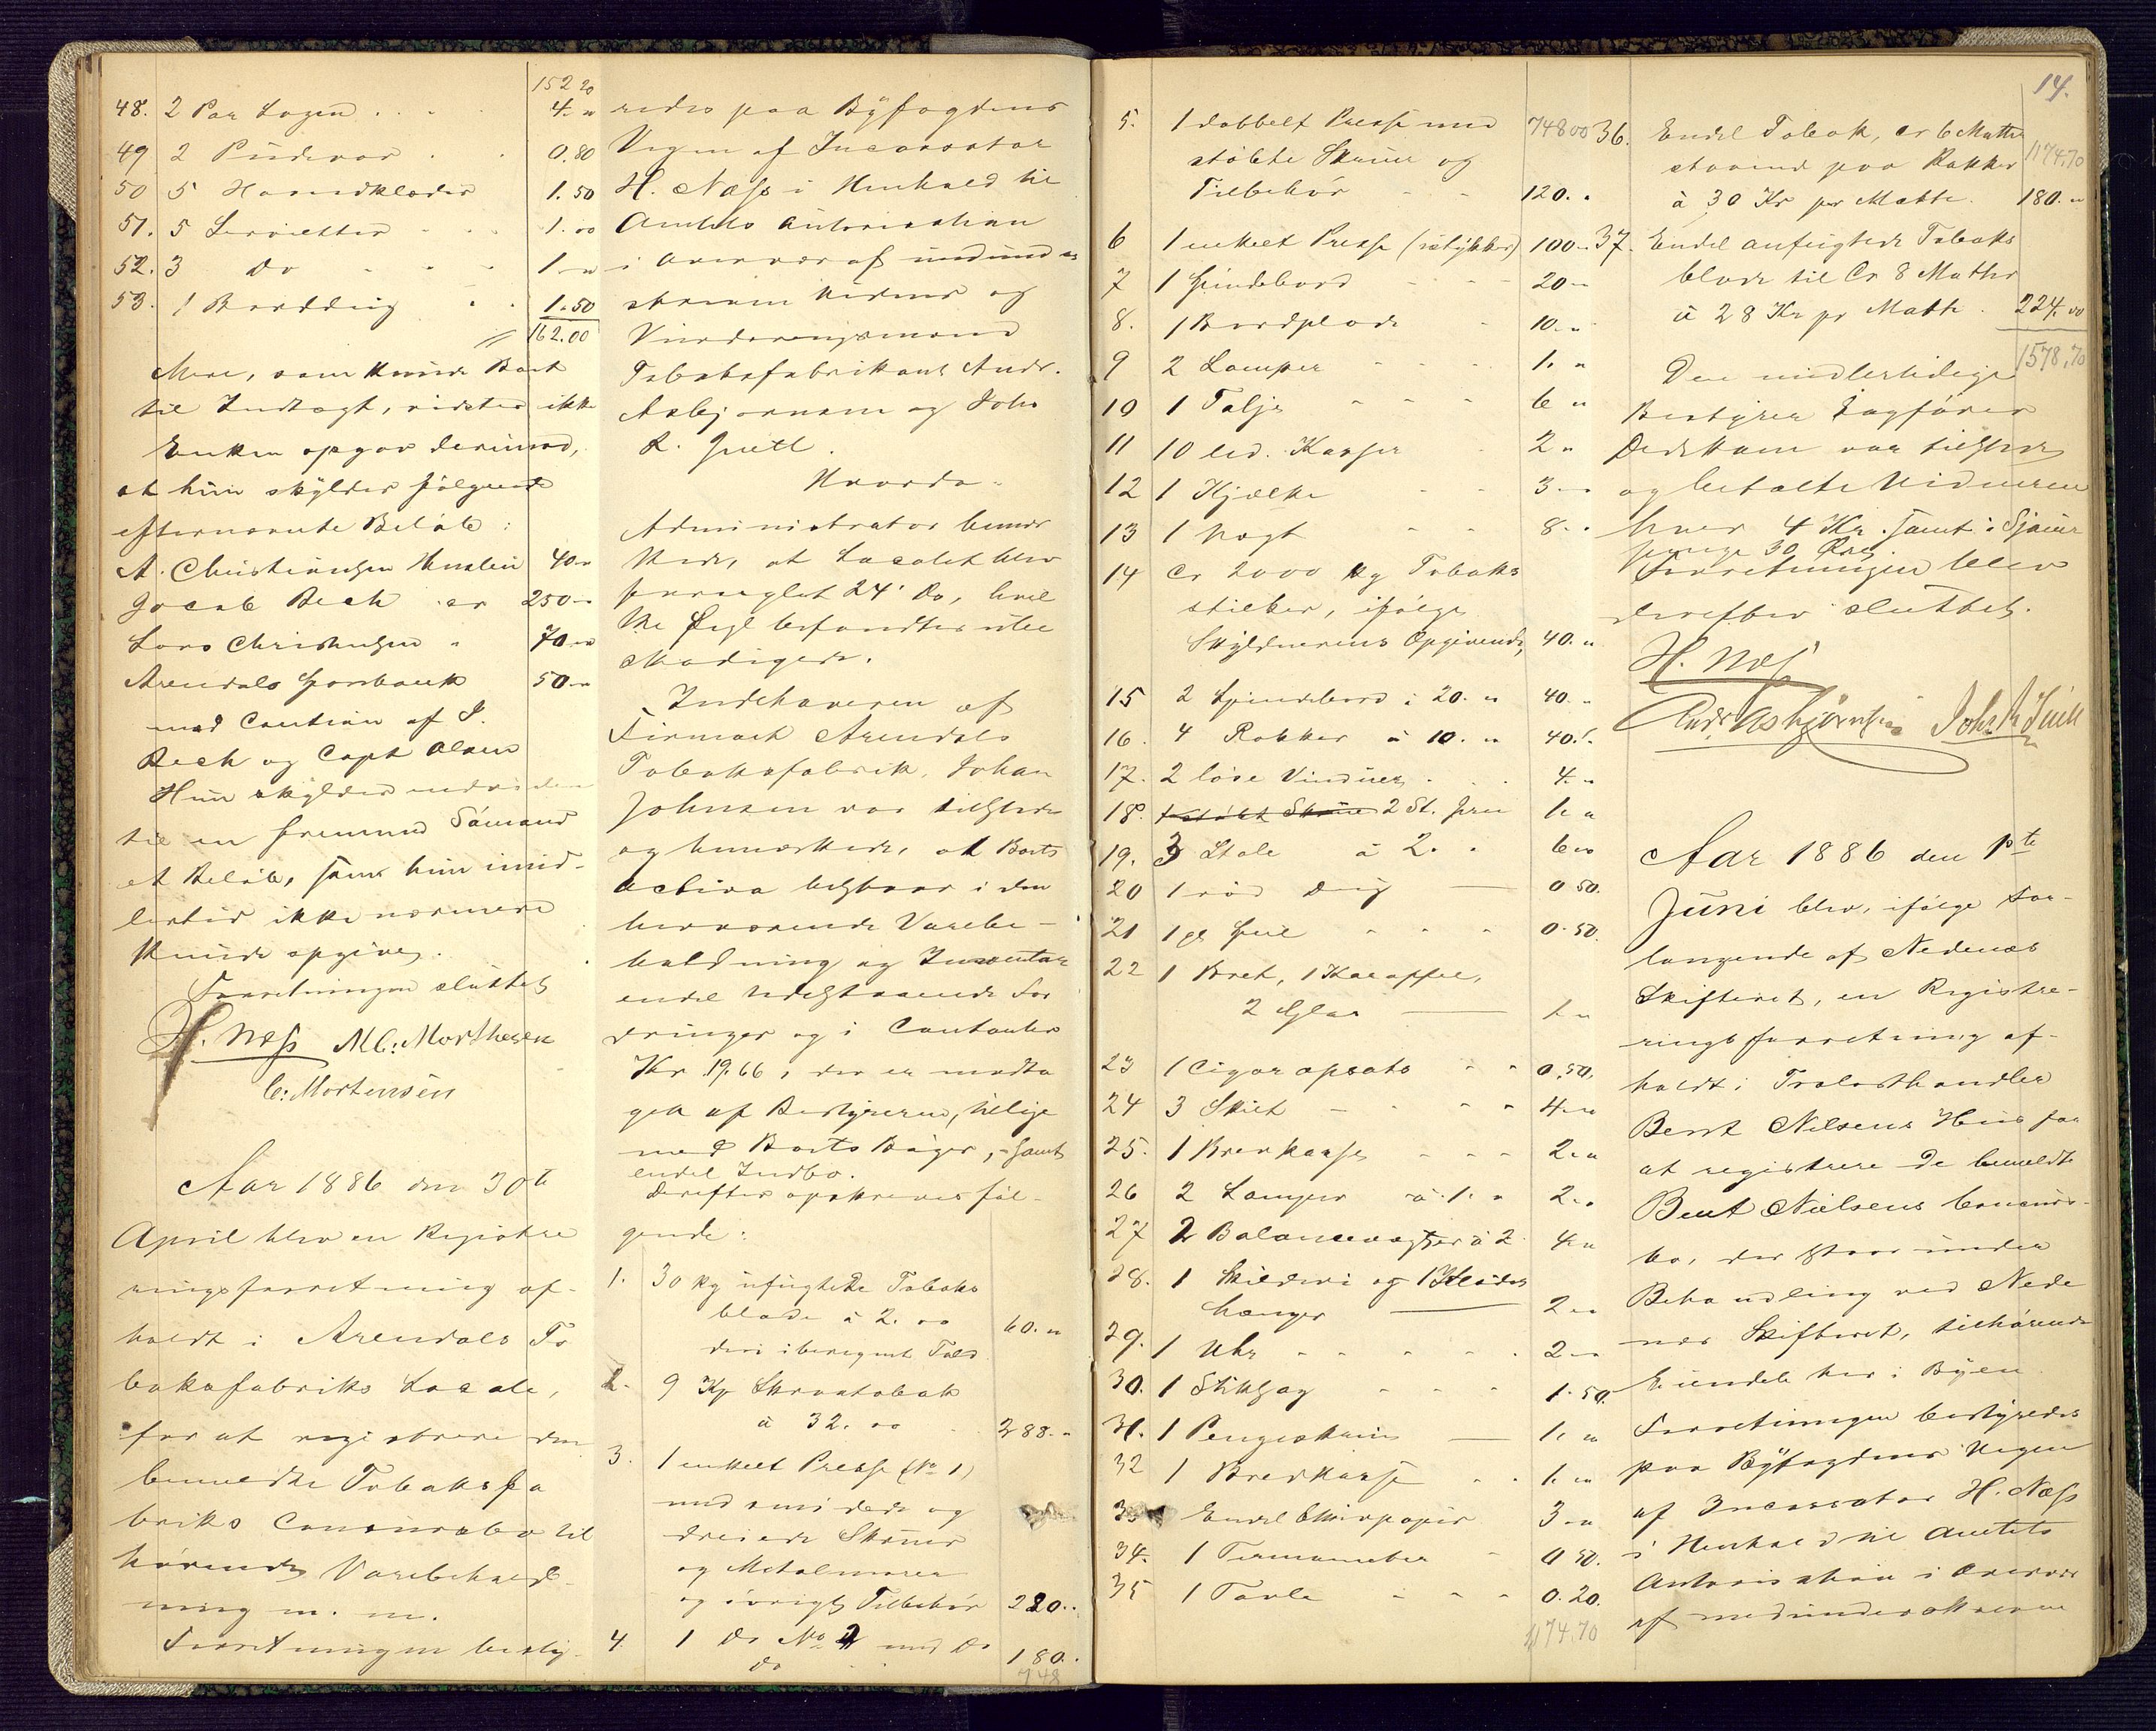 152 20
48. 2 Par Lagen . . . 4. "
49 2 Pudevar . . 0.80
50 5 Haandklæder 1.50
51. 5 Servietter - - 1.00
52. 3 Do - - - 1 - "
53. 1 Borddug . . 1.50
162.00
Mere, som kunde
til Indtægt, vidstes ikke
Enken opgav derimod,
at hun skylder følgende
efternævnte Beløb:
A. Christiansen 40 - "
Jacob Bech . cr 250 - "
Lars Christensen " 70 - "
Arendals Sparebank 50 - "
med Caution af J.
Bech og Capt Olsen
Hun skylder endvidere
til en fremmed Sømand
et Beløb, som hun imid-
lertid ikke nærmere
kunde opgives.
Forretningen sluttet
H. Næss M C: Morthesen
C: Mortensen
Aar 1886 den 30te
April blev en Registre
ringsforretning af-
holdt i Arendals To
baksfabriks Locale,
for at registrere den
bemeldte Tobaksfa
briks Concursbo til
hørende Varebehold-
ning m. m.
Forretningen besty-
redes paa Byfogdens
Vegne af Incassator
H. Næss i Henhold til
Amtets Autorisation
i Overvær af
Vidner og
Vurderingsmænd
Tobaksfabrikant Andr.
Asbjørnsen og John
R. Juell.
Hvorda.
Administrator bemær
kede, at Localet blev
forseglet 24' Do, hvil
ke Segl befandtes ube
skadigede.
Indehaveren af
Firmaet Arendals
Tobaksfabrik, Johan
Johnsen var tilstede
og bemærkede, at Boets
Activa bestaar i den
herværende Varebe-
holdning og Inventar
endel udestaaende For
dringer og i Contanter
Kr. 19.66, der er modta
gen af Bestyreren, tillige
med Boets Bøger, - samt
endel Indbo.
Derefter opskreves føl-
gende:
1. 30 kg ufugtede Tobaks
blade à 2. 00 60. "
deri iberegnet Told
2. 9 Kg Skraatobak
à 32. 00 288. "
3. 1 enkelt Presse (No 1)
med smidede og
dreiede Skruer
og Metalmoerer
og øvrigt Tilbehør 220. .
4. 1 do No 2 med Do
do 180.
748
14.
5. 1 dobbelt Presse med 748 00
støbte Skruer og
Tilbehør - - 120. "
6 1 enkelt Presse (istykker) 100 - "
7 1 Spindebord - - - 20 - "
8. 1 Bordplade - 10. "
9 2 Lamper - - - 1. "
10 1 Talje - - - 6 "
11 10 led. Kasser - 2 "
12 1 Kjælke - - 3 - "
13 1 Vægt - - 8. .
14 Cr 2000 kg Tobaks
stilker, ifølge
Skyldnerens Opgivende, 40. "
15 2 Spindebord à 20. " 40. "
16. 4 Rokker à 10. " 40. "
17. 2 løse Vinduer . . . 4. "
18. 1 støbt Skrue 2 St. Jern 1. "
19. 3 Stole à 2. . 6. "
20 1 rød Dug 0 50.
21 1 gl - - - 0.50.
22 1 Bret, 1 Karaffel,
2 Glas 1. "
23 1 Cigaropsats - - 0,50.
24 3 Skilt - - - - 4. "
25. 1 Brevkasse - - - 2. "
26 2 Lamper à 1. " 2. "
27 2 Balancevægter à 2 4. "
28. 1 Skilderi og 1 Klædes
hænger 2 - "
29. 1 Uhr - - - - . 2 - "
30. 1 Stiksag - - - 1.50.
31. 1 Pengeskrin 1. "
32 1 Brevkasse - . 1. "
33 Endel Skrivpapir 3 - "
34. 1 Termometer - 0 50.
35 1 Tavle - - - 0.20.
1174.70
36. Endel Tobak, cr 6 Matter
staaende paa Rokker 1174.70
à 30 Kr pr Matte. 180. "
37. Endel anfugtede Tobaks
blade til Cr 8 Matter
à 28 Kr pr Matte . 224. 00
1578,70
Den midlertidige
Bestyrer Sagfører
Dedekam var tilstede
og betalte Vidnerne
hver 4 Kr. samt i Sjauer
penge 30 Øre
Forretningen blev
derefter sluttet.
H. Næss
Andr. Asbjørnsen John R Juell
Aar 1886 den 1ste
Juni blev, ifølge For-
langende af Nedenæs
Skifteret, en Registre-
ringsforretning af-
holdt i Trælasthandler
Bent Nilsens Hus for
at registrere de bemeldte
Bent Nielsens Concurs-
bo, der staar under
Behandling ved Nede
næs Skifteret, tilhørende
Eiendele her i Byen
Forretningen bestyredes
paa Byfogdens Vegne
af Incassator H. Næss
i Henhold til Amtets
Autorisation i Overvær
af medunderskrevne